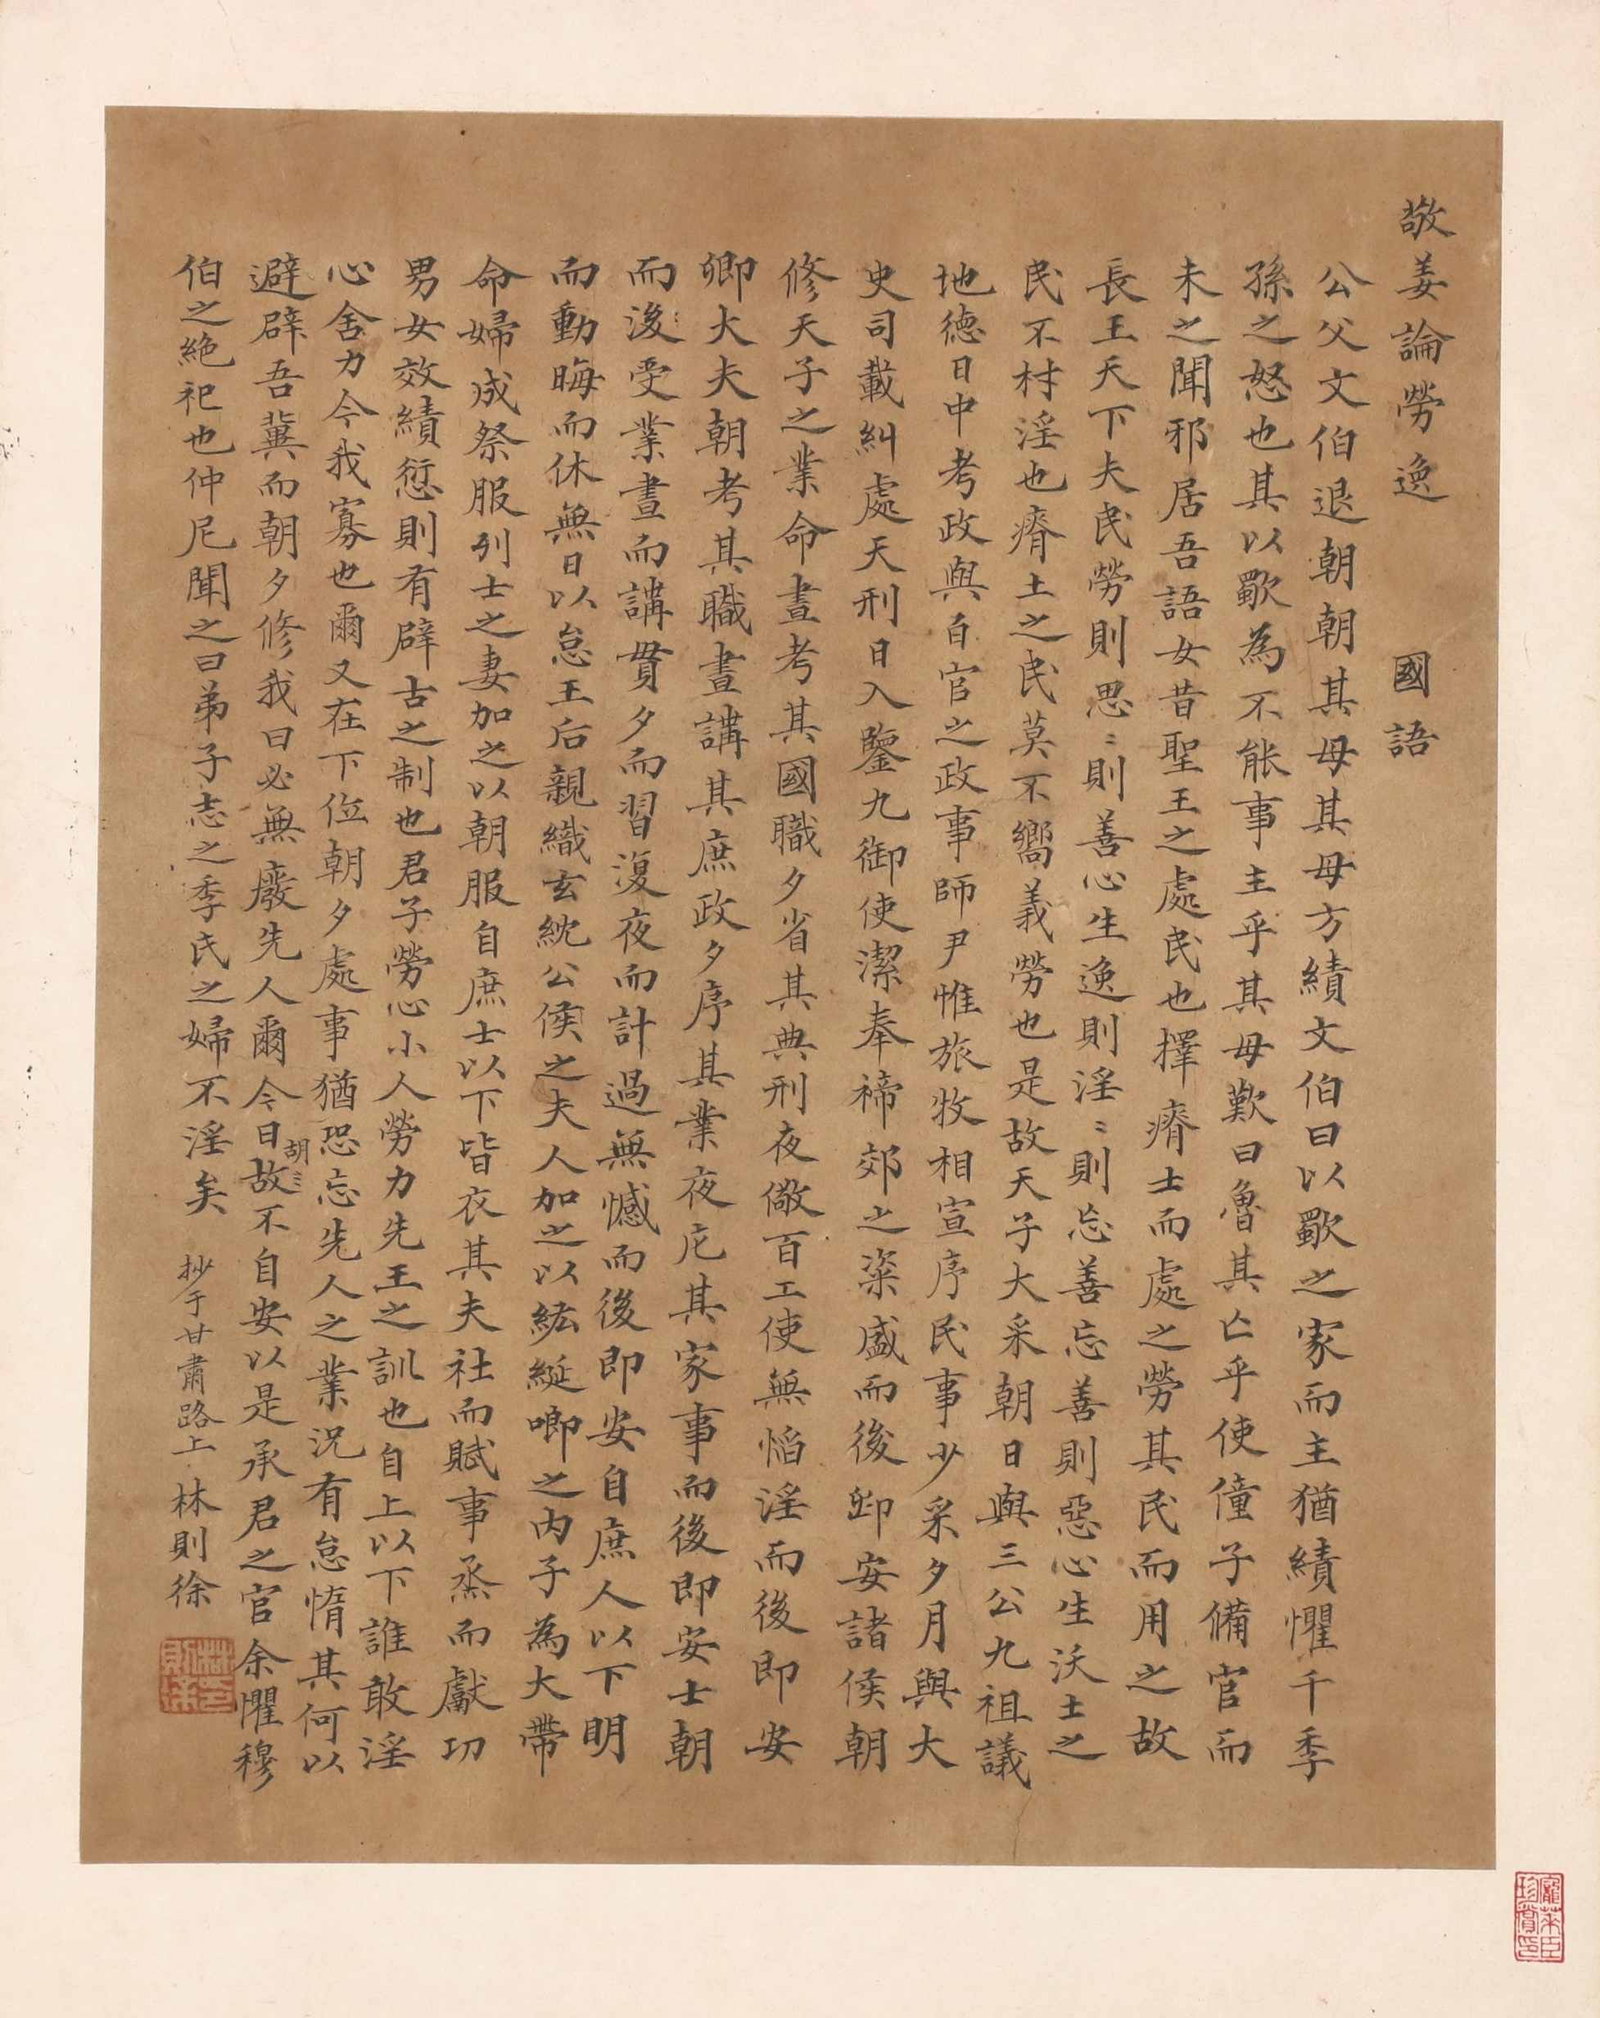 敬姜論勞逸　國語
公父文伯退朝朝其母其母方績文伯曰以歜之家而主猶績懼干季
孫之怒也其以歜為不能事主乎其母歎曰魯其亡乎使僮子備官而
未之聞邪居吾語女昔聖王之處民也擇瘠土而處之勞其民而用之故
長王天下夫民勞則思〻則善心生逸則淫〻則忘善忘善則惡心生沃土之
民不材淫也瘠土之民莫不嚮義勞也是故天子大采朝日與三公九祖議
地德日中考政與百官之政事師尹惟旅牧相宣序民事少采夕月與大
史司載糾處天刑日入鑒九御使潔奉禘郊之粢盛而後即安諸侯朝
修天子之業命晝考其國職夕省其典刑夜儆百工使無慆淫而後即安
卿大夫朝考其職晝講其庶政夕序其業夜庀其家事而後即安士朝
而後受業晝而講貫夕而習復夜而計過無憾而後即安自庶人以下明
而動晦而休無日以怠王后親織玄紞公侯之夫人加之以紘綖卿之內子為大帶
命婦成祭服列士之妻加之以朝服自庶士以下皆衣其夫社而賦事烝而獻功
男女效績愆則有辟古之制也君子勞心小人勞力先王之訓也自上以下誰敢淫
心舍力今我寡也爾又在下位朝夕處事猶恐忘先人之業況有怠惰其何以
避辟吾冀而朝夕修我曰必無廢先人爾今曰故不自安以是承君之官余懼穆
胡〻
伯之絕祀也仲尼聞之曰弟子志之季氏之婦不淫矣
抄于甘肅路上　林則徐
林則徐印
龐萊臣珍賞印